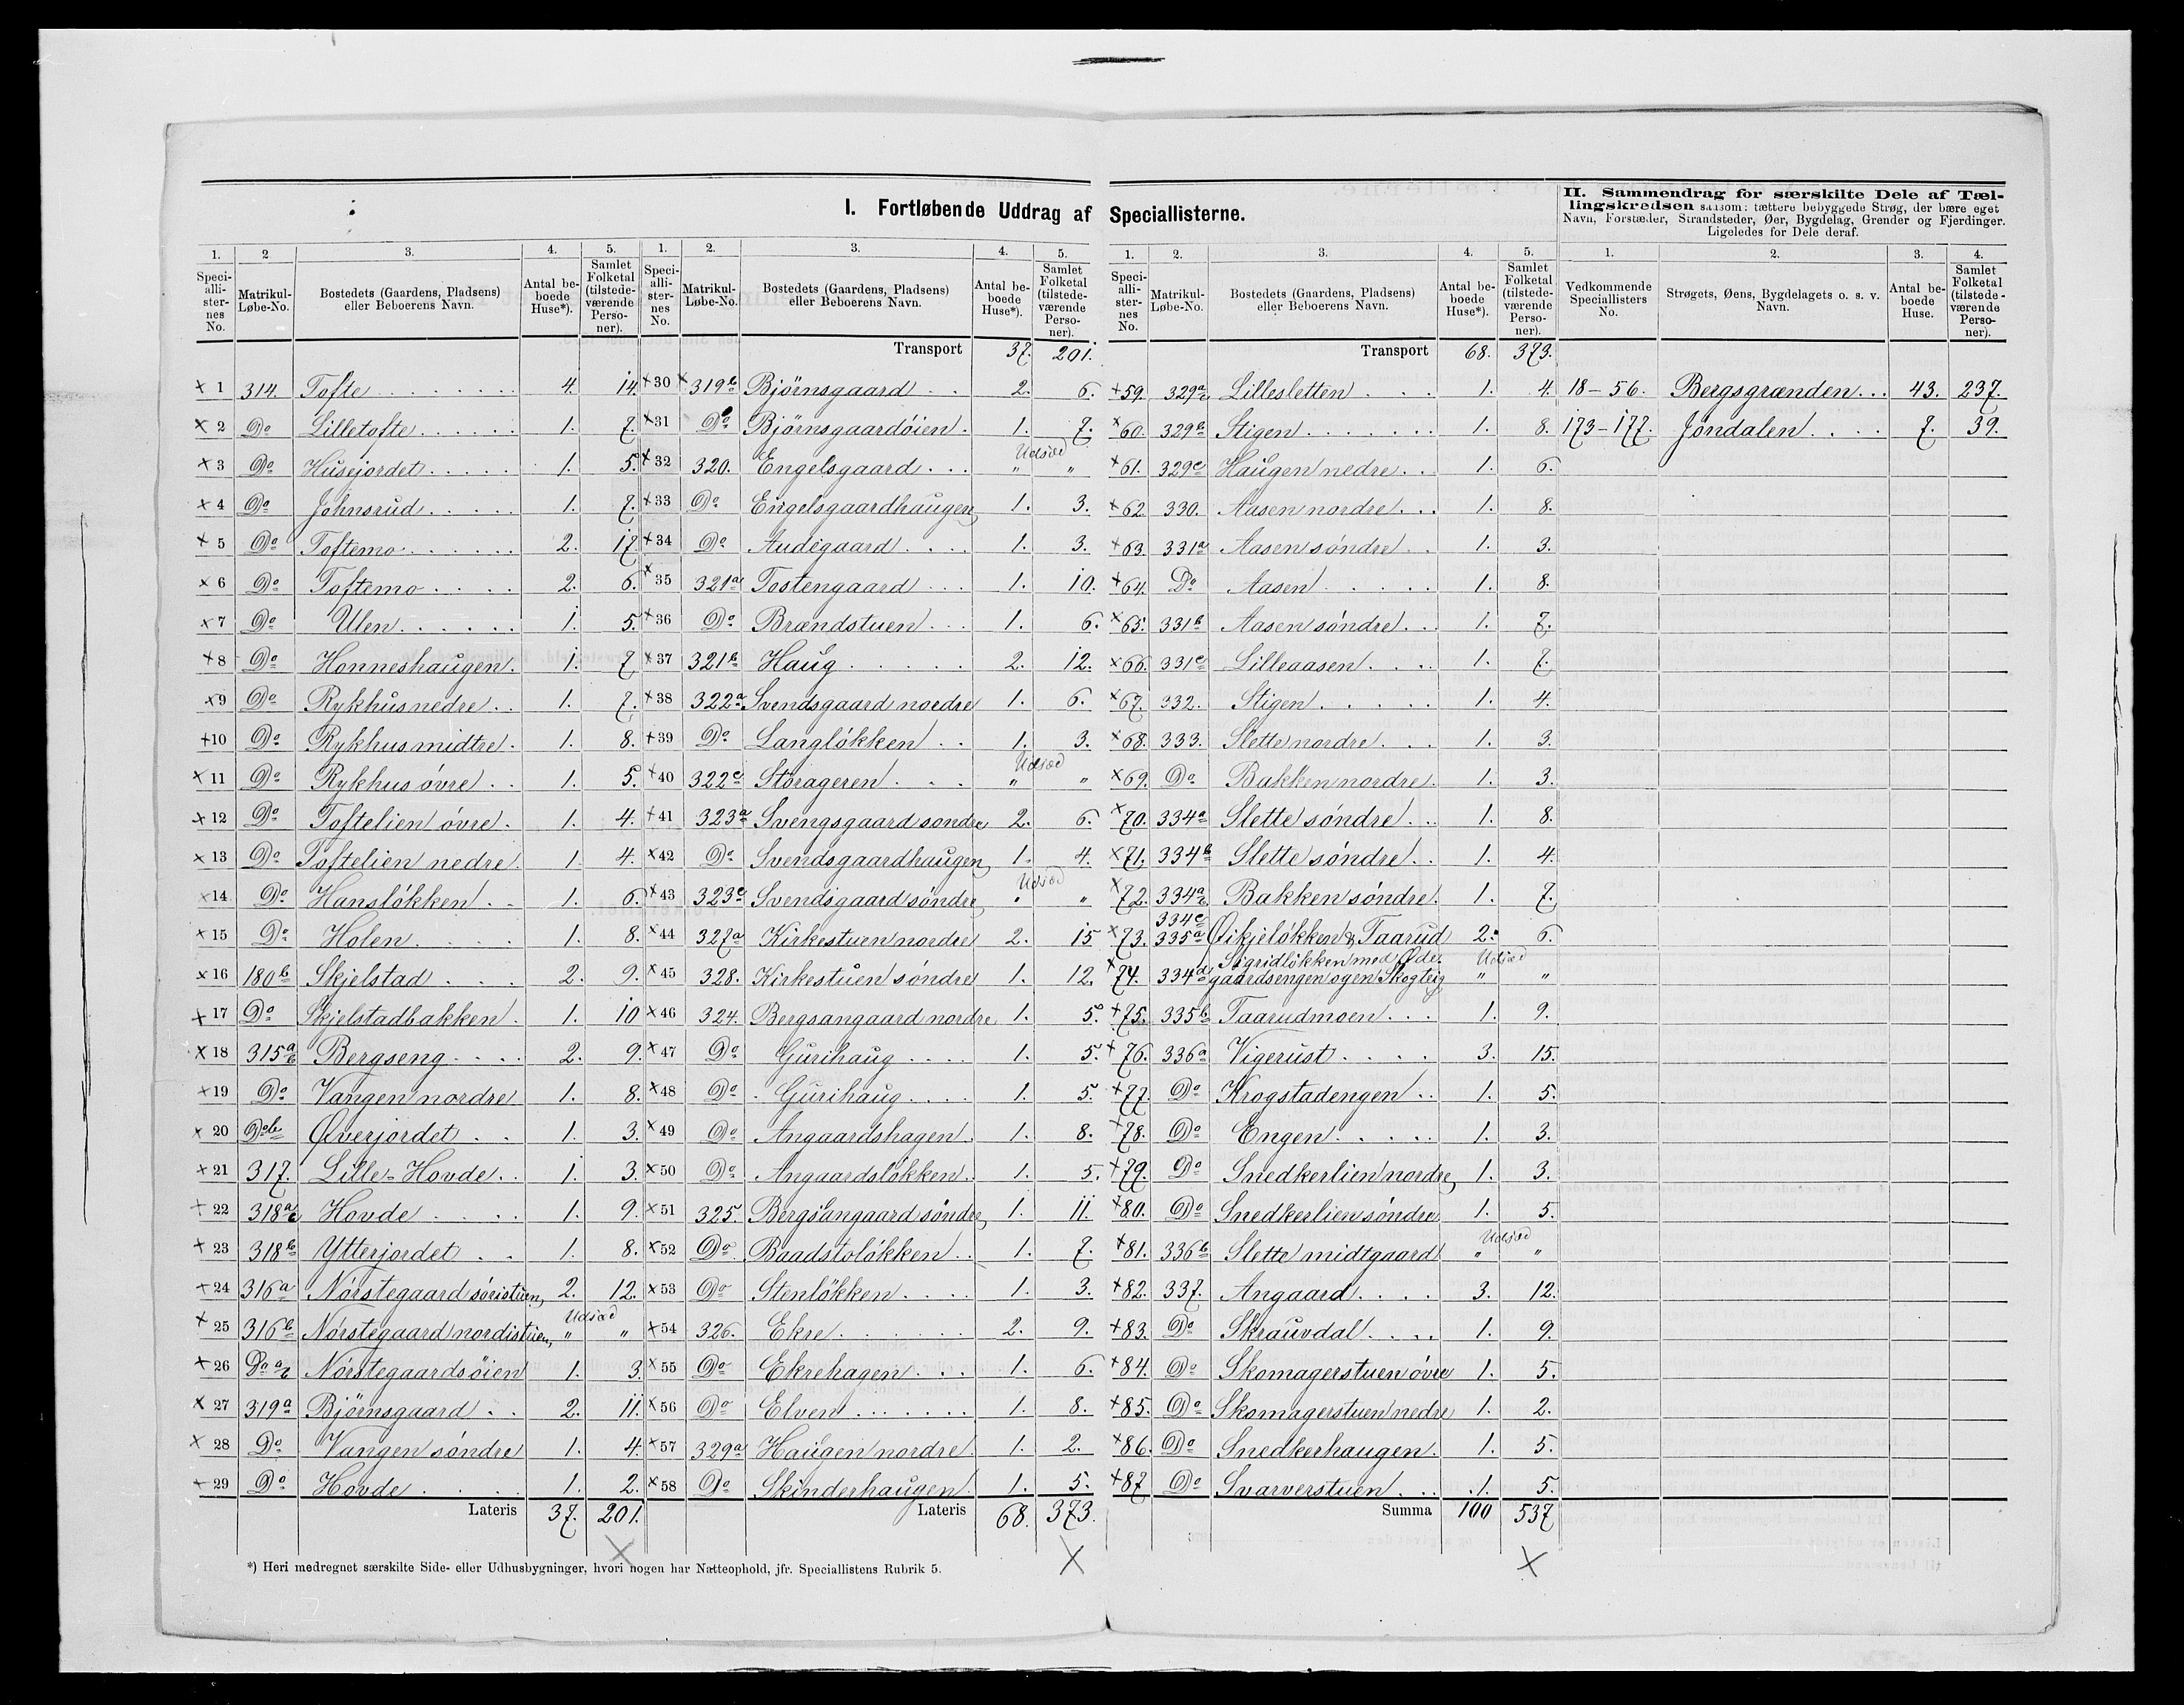 I. Fortløbende Uddrag af Speciallisterne.
II. Sammendrag for særskilte Dele af Tæl-
lingskredsen saasom: tættere bebyggede Strøg, der bære eget
Navn, Forstæder, Strandsteder, Øer, Bygdelag, Grender og Fjerdinger.
Ligeledes for Dele deraf.
1. 2 3. 4. 5.
Speciallisternes No. Matrikul-Løbe-No. Bostedets (Gaardens, Pladsens) eller Beboerens Navn. Antal beboede Huse*). Samlet Folketal (tilstedeværende Personer).
× 1 314. Tofte 4. 14.
× 2 Do Lilletofte 1. 7.
× 3 Do Husejordet 1. 5.
× 4 Do Johnsrud 1. 7.
× 5 Do Toftemo 2. 17
× 6 Do Toftemo 2. 6.
× 7 Do Ulen 1. 5.
× 8 Do Honneshaugen 1. 7
× 9 Do Rykhus nedre 1. 7.
× 10 Do Rykhus midtre 1. 8.
× 11 Do Rykhus øvre 1. 5.
× 12 Do Toftelien øvre 1. 4.
× 13 Do Toftelien nedre 1. 4.
× 14 Do Hansløkken 1. 6.
× 15 Do Holen 1. 8.
× 16 180b Skjelstad 2. 9.
× 17 Do Skjelstadbakken 1. 10
× 18 315a Bergseng 2. 9.
× 19 Do Vangen nordre 1. 8.
× 20 Do b Øverjordet 1. 3.
× 21 317. Lille-Hovde 1. 3.
× 22 318a Hovde 1. 9.
× 23 318b Ytterjordet 1. 8.
× 24 316a Nørstegaard søristuen, 2. 12.
× 25 316b Nørstegaard nordistuen, Udsæd " "
× 26 Do a Nørstegaardsøien 1. 3.
× 27 319a Bjørnsgaard 2. 11.
× 28 Do Vangen søndre 1. 4.
× 29 Do Hovde 1. 2.
Lateris 37. 201.
1. 2. 3. 4. 5.
Speciallisternes No. Matrikul-Løbe-No. Bostedets (Gaardens, Pladsens) eller Beboerens Navn. Antal beboede Huse*). Samlet Folketal (tilstedeværende Personer).
Transport 37. 201.
× 30 × 319b Bjørnsgaard 2. 6.
× 31 Do Bjørnsgaardøien 1. 7.
× 32 320. Engelsgaard Udsæd " "
× 33 Do Engelsgaardhaugen 1. 3.
× 34 Do Audegaard 1. 3.
× 35 321a Tostengaard 1. 10.
× 36 Do Brændstuen 1. 6.
× 37 321b Haug 2. 12.
× 38 322a Svendsgaard nordre 1. 6.
× 39 Do Langløkken 1. 3.
× 40 322c Storageren Udsæd " "
× 41 323a Svengsgaard søndre 2. 6.
× 42 Do Svendsgaardhaugen 1. 4.
× 43 323c Svendsgaard søndre Udsæd " "
× 44 327a Kirkestuen nordre 2. 15
× 45 328. Kirkestuen søndre 1. 12.
× 46 324. Bergsangaard nordre 1. 5.
× 47 Do Gurihaug 1. 5.
× 48 Do Gurihaug 1. 5.
× 49 Do Angaardshagen 1. 8.
× 50 Do Angaardsløkken 1. 5.
× 51 325. Bergsangaard søndre 1. 11.
× 52 Do Baadstoløkken 1. 7.
× 53 Do Stenløkken 1. 3.
× 54 326. Ekre 2. 9.
× 55 Do Ekrehagen 1. 6.
× 56 Do Elven 1. 8.
× 57 329a Haugen nordre 1. 2.
× 58 Do Skinderhaugen 1. 5.
Lateris 68. 373.
1. 2. 3. 4. 5.
Speciallisternes No. Matrikul-Løbe-No. Bostedets (Gaardens, Pladsens) eller Beboerens Navn. Antal beboede Huse*). Samlet Folketal (tilstedeværende Personer).
Transport 68. 373.
× 59. 329a Lillesletten 1. 4.
× 60. 329b Stigen 1. 8.
× 61. 329c Haugen nedre 1. 6.
× 62 330. Aasen nordre 1. 8.
× 63. 331a Aasen søndre 1. 3.
× 64. Do Aasen 1. 8.
× 65. 331b Aasen søndre 1. 7.
× 66. 331c Lilleaasen 1. 7.
× 67. 332. Stigen 1. 4.
× 68. 333. Slette nordre 1. 3.
× 69. Do Bakken nordre 1. 3.
× 70. 334a Slette søndre 1. 8.
× 71. 334b Slette søndre 1. 4.
× 72. 334a Bakken søndre 1. 7.
× 73. 334c 335a Øikjeløkken & Taarud 2. 6.
× 74. 334d Sigridløkken med Ødegaardsengen og en Skogteig Udsæd " "
× 75. 335b Taarudmoen 1. 9.
× 76. 336a Vigerust 3. 15.
× 77. Do Krogstadengen 1. 5.
× 78. Do Engen 1. 3.
× 79. Do Snedkerlien nordre, 1. 3.
× 80. Do Snedkerlien søndre 1. 5.
× 81. 336b Slette midtgaard Udsæd " "
× 82. 337. Angaard 3. 12.
× 83. Do Skrauvdal 1. 9.
× 84. Do Skomagerstuen øvre 1. 5.
× 85. Do Skomagerstuen nedre 1. 2.
× 86. Do Snedkerhaugen 1. 5.
× 87 Do Svarverstuen 1. 5.
Summa 100 537
1. 2. 3. 4.
Vedkommende Speciallisters No. Strøgets, Øens, Bygdelagets o. s. v. Navn. Antal beboede Huse. Samlet Folketal (tilstedeværende Personer).
18 – 56. Bergsgrænden 43. 237.
173 – 177. Jøndalen 7. 39.
*) Heri medregnet særskilte Side- eller Udhusbygninger, hvori nogen har Natteophold, jfr. Speciallistens Rubrik 5.